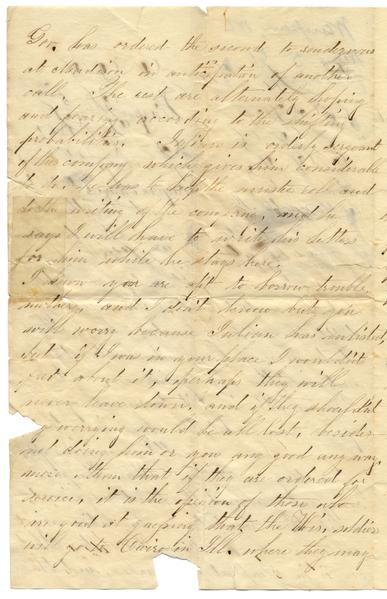 Gov. has ordered the second to rendezvous
at Madison in anticipation of another
call. The rest are alternately hoping
and fearing according to the shifting
probabilities. Julian is orderly sergeant
of this company which gives him considerable
to do. He has to keep the muster roll and
do the writing of the company, and he
says I will have to write his letters
for him while he stays here.
I know you are apt to borrow trouble,
mother, and I that know but you
will worry because Julian has enlisted,
but if I was in your place I wouldn't
fret about it, perhaps they will
never leave town, and if they should all
worrying would be all lost, besides
not doing him or you any good any way
more than that if they are ordered for
service, it is the opinion of those who
are good at guessing that the Wis. soldiers
will go to Cairo in Ill. where they may